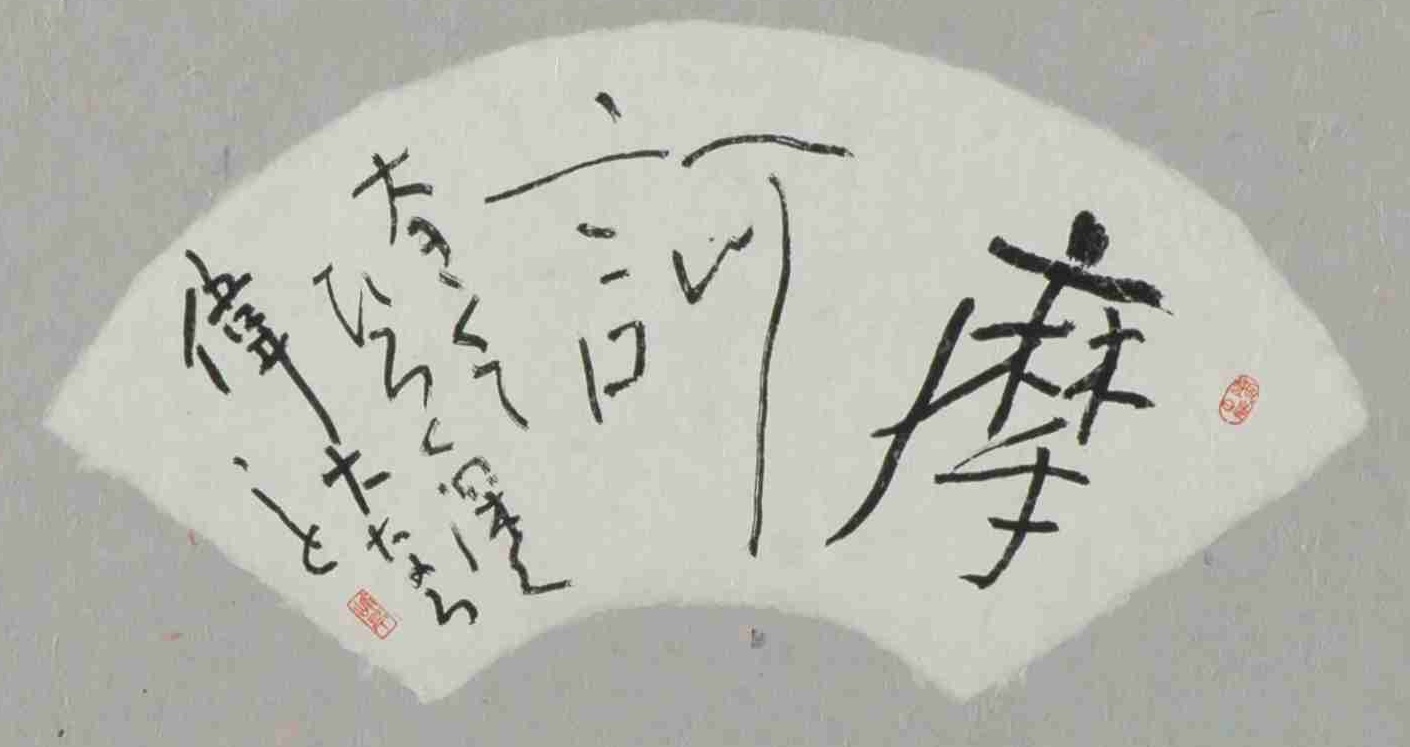 摩訶
大きくて深く
ひろく
偉大なる
こと